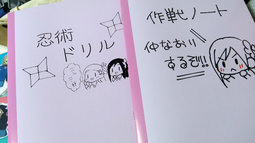 忍術
ドリル
作戦ノート
仲なおり
するぞ!!